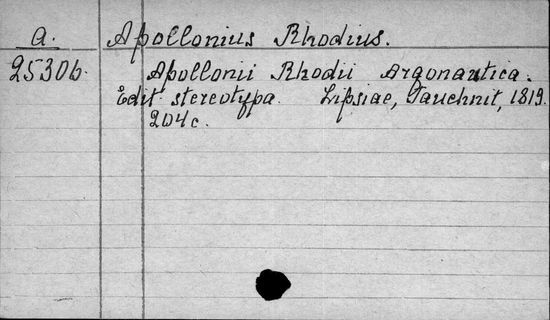 a. Apollonius Rhodius.
25306. Apollonii Rhodii Argonautica.
Edit. stereotypa. Lipsiae, Tauchnit, 1819.
204 c.